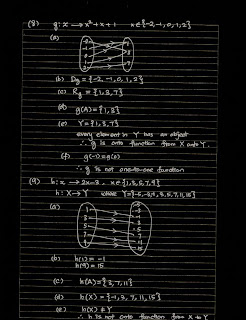 (8) g: x → x²+x+1 x∈{-2,-1,0,1,2}
(a)
-2
-1
0
1
2
1
3
7
(b) Dg = {-2, -1, 0, 1, 2}
(c) Rg = {1,3,7}
(d) g(A) = {1,3}
(e) Y = {1,3,7}
every element in Y has an object
∴ g is onto function from X onto Y.
(f) g(-1) = g(0)
∴ g is not one-to-one function
(9) h: x → 2x-3, x∈{1,3,5,7,9}
h: X → Y where
(a)
1
3
5
7
9
(b) h(1) = -1
h(9) = 15
(c) h(A) = {3,7,11}
(d) h(X) = {-1,3,7,11,15}
(e) h(X) ≠ Y
∴ h is not onto function from X to Y